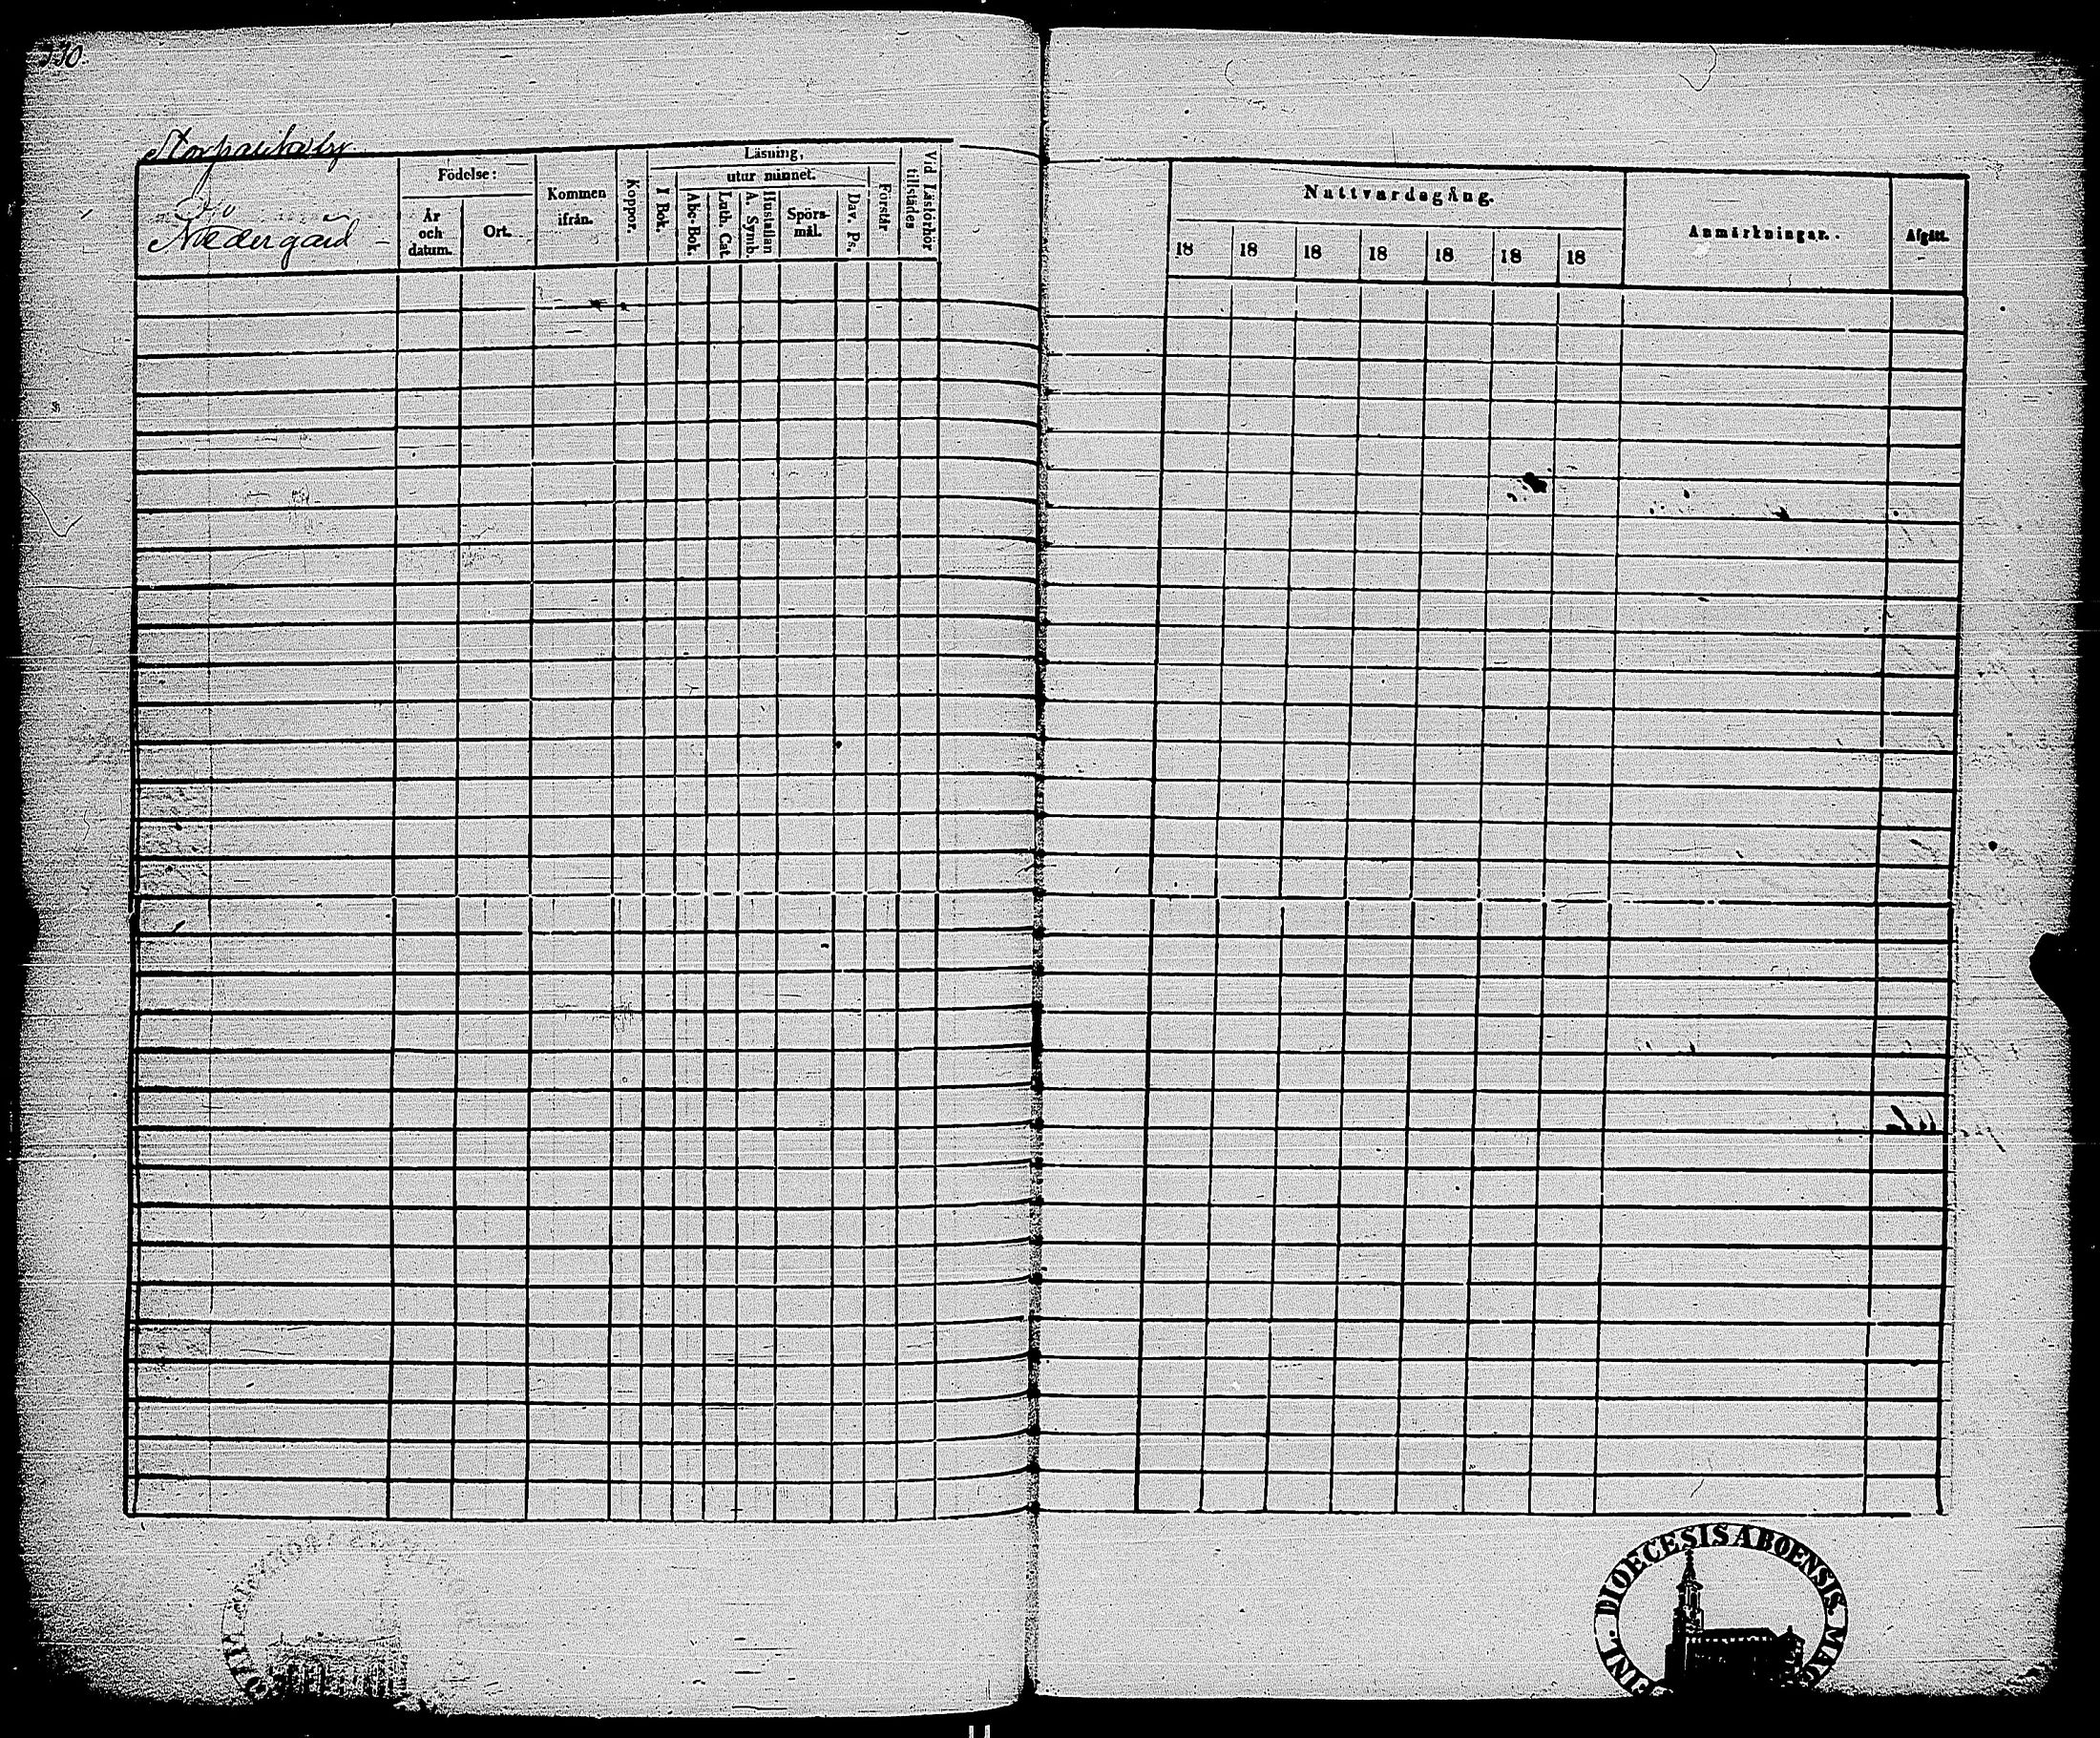 330.
Storpaikaby
Do
Nedergård
Födelse:
År och datum.
Ort.
Kommen ifrån.
Koppor.
Läsning,
I Bok.
utur minnet.
Abc-Bok.
Luth. Cat.
Hustaflan A. Symb.
Spörsmål.
Dav. Ps.
Förstår
Vid Läsförhör tillstädes
Nattvardsgång.
18 18 18 18 18 18 18
Anmärkningar.
Afgått.
DIOECESIS ABOENSIS. MAG